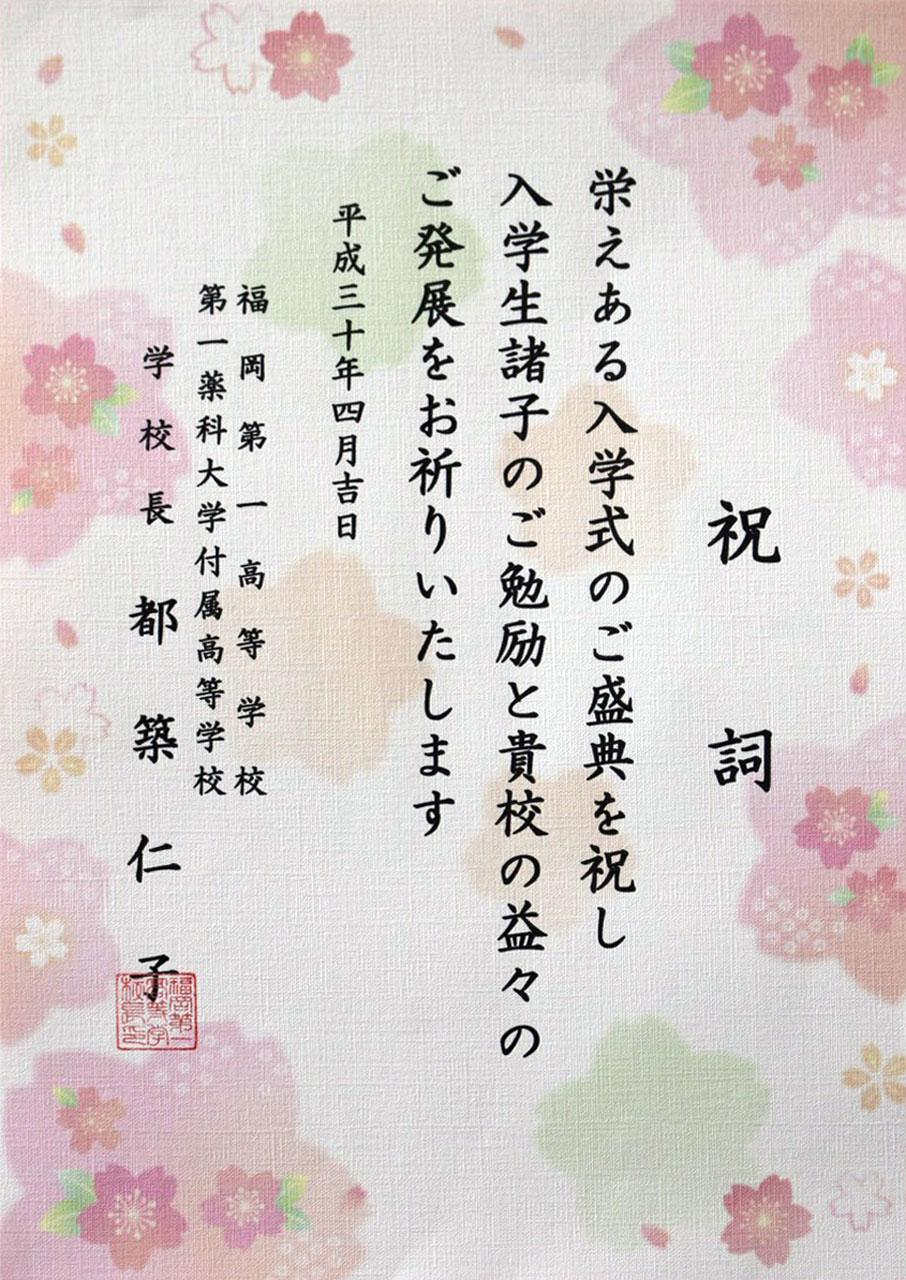 祝詞
栄えある入学式のご盛典を祝し
入学生諸子のご勉励と貴校の益々の
ご発展をお祈りいたします
平成三十年四月吉日
福岡第一高等学校
第一薬科大学付属高等学校
学校長 都築仁子
福岡第一
高等学
校長之印